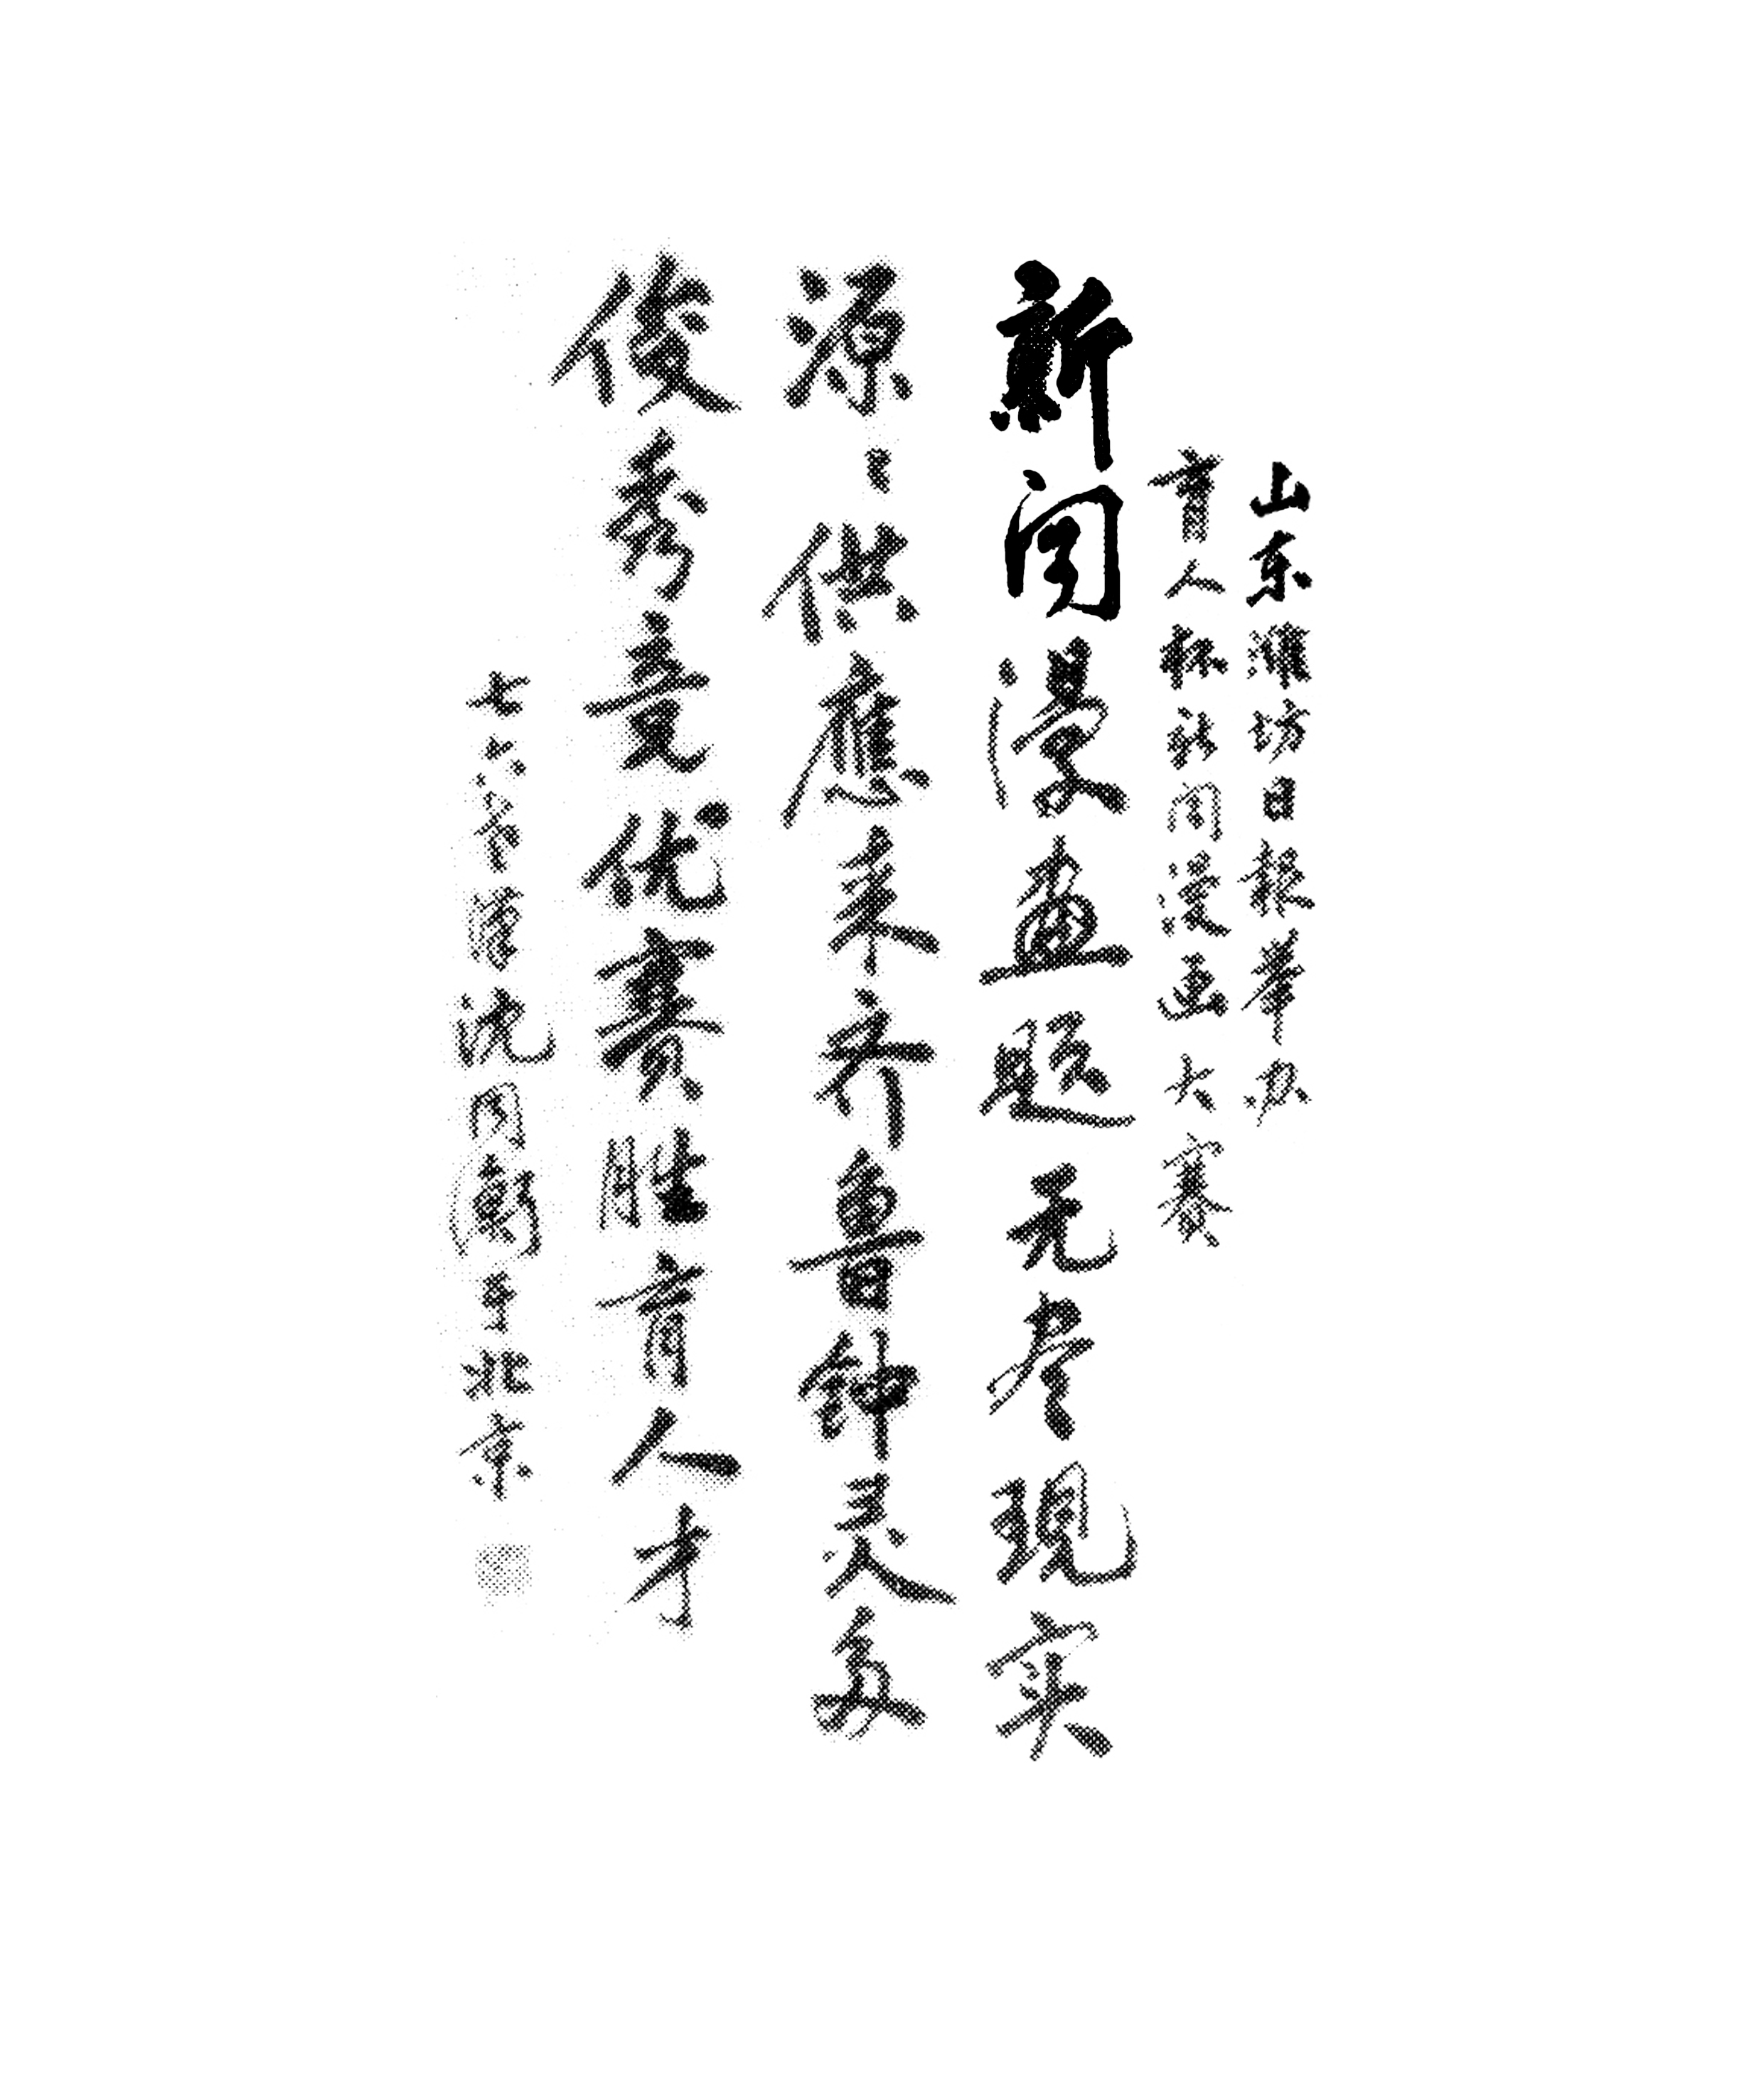 山东潍坊日报举办
育人杯新闻漫画大赛
新闻漫画题无尽现实
源源供应来齐鲁钟灵多
俊秀竞优赛胜育人才
七六岁 沈同衡于北京